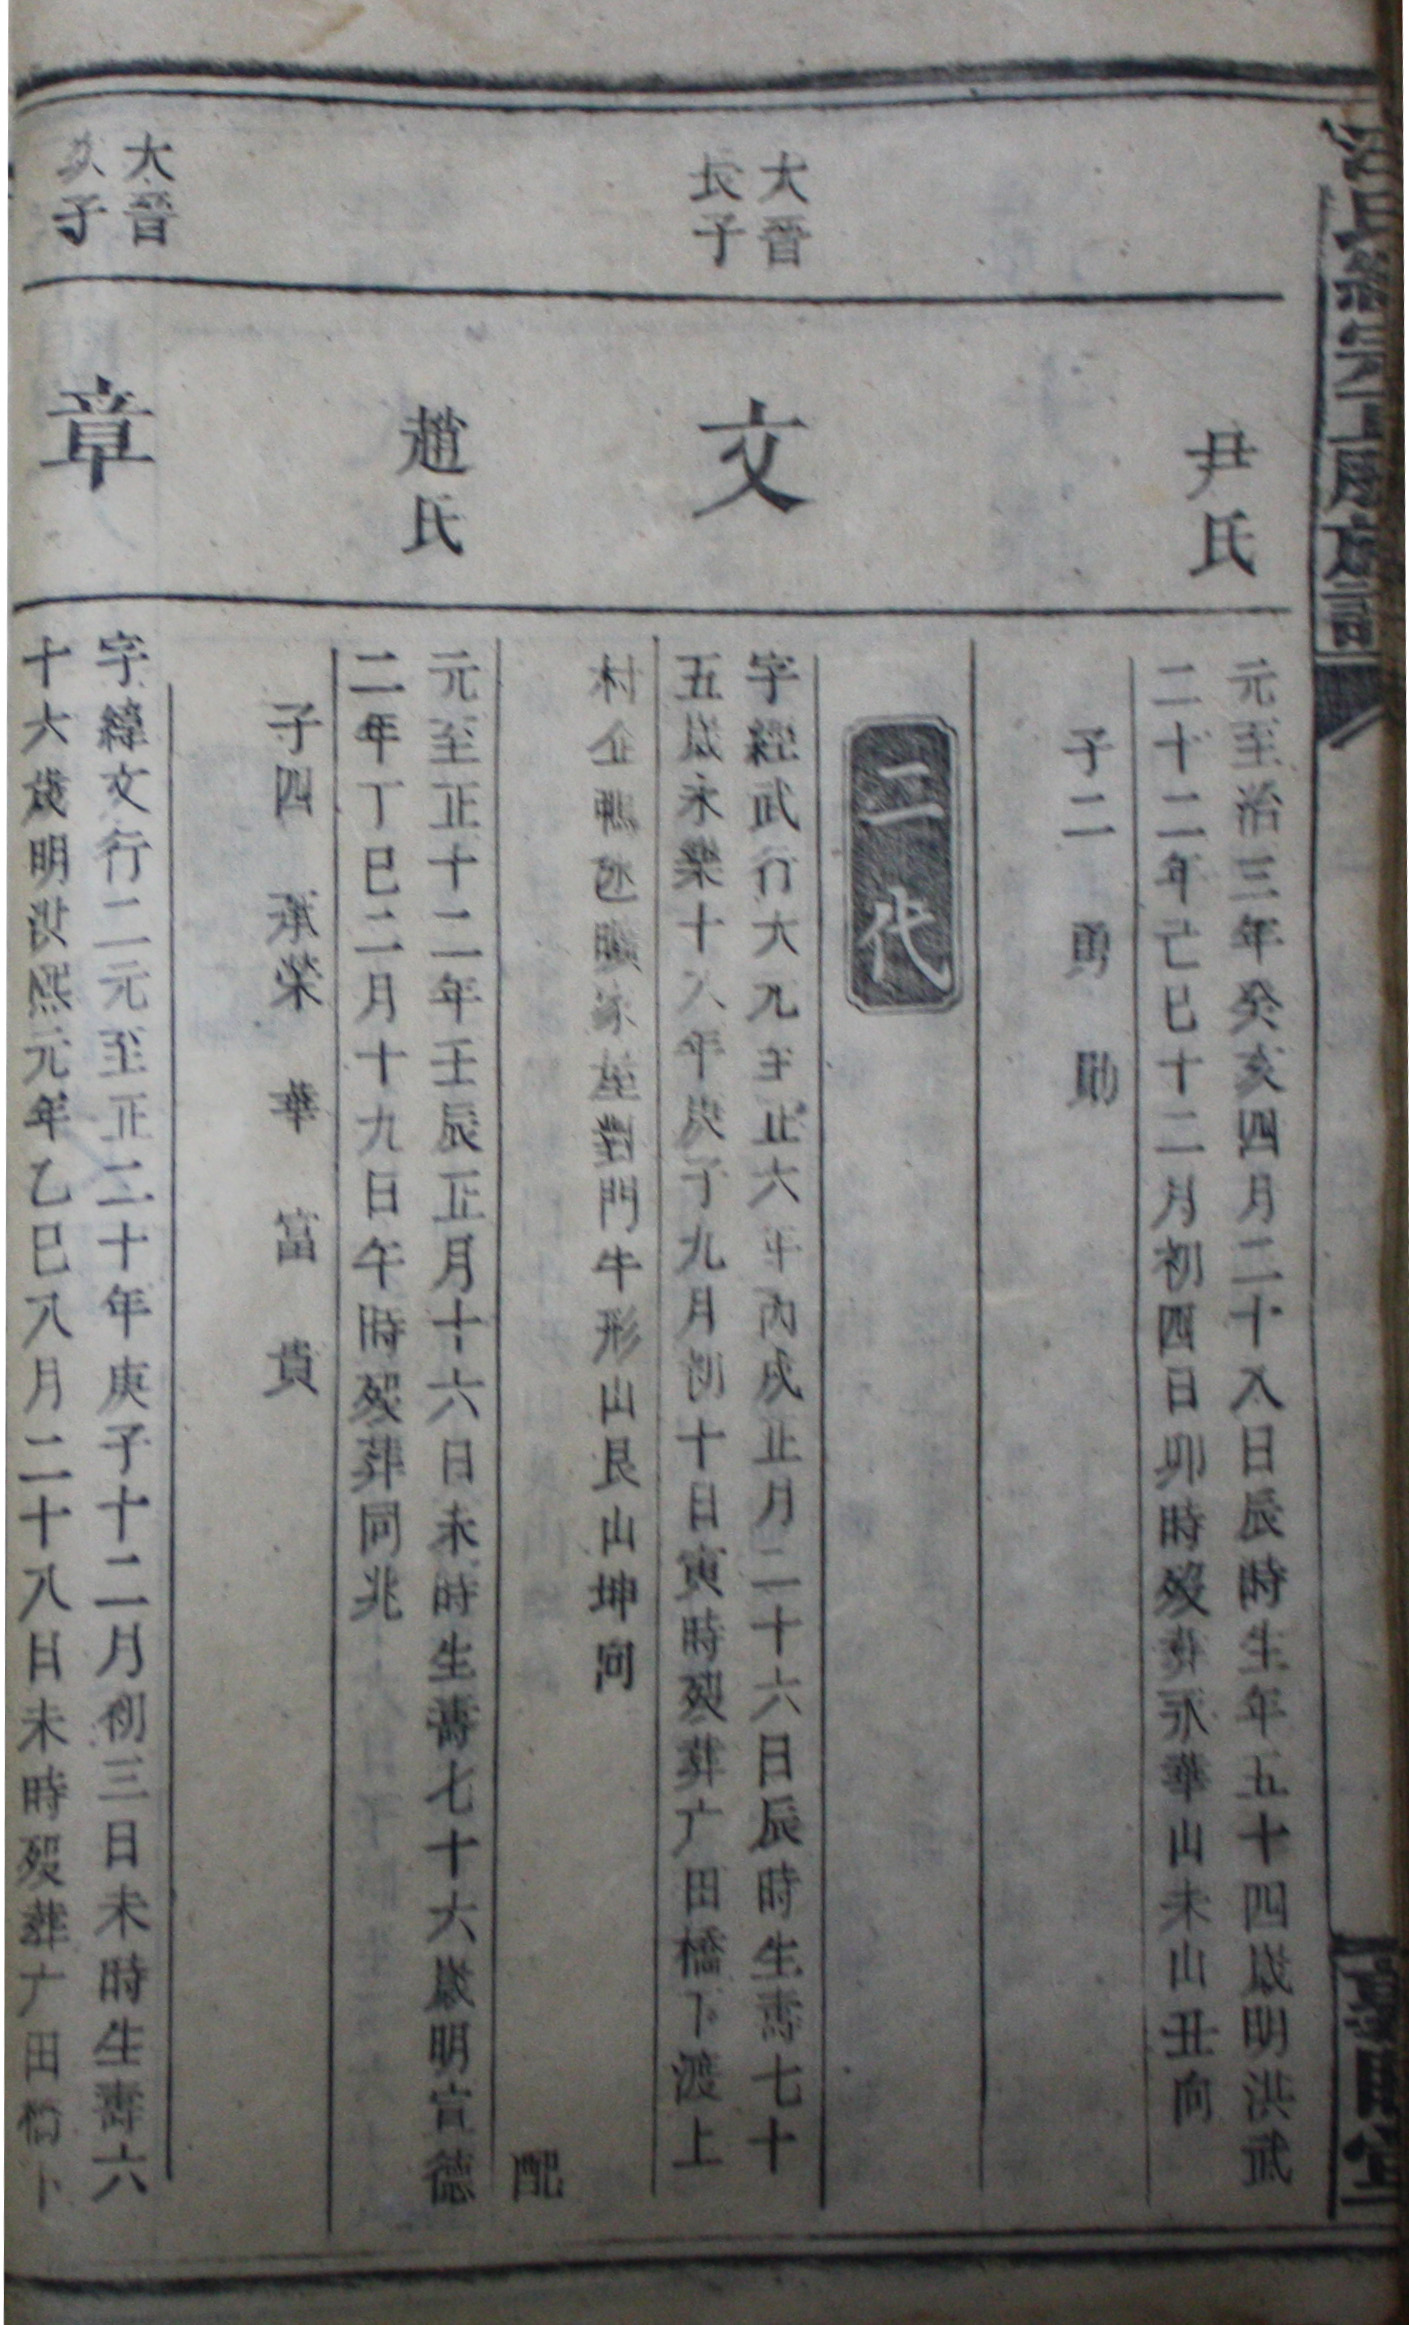 尹氏
元至治三年癸亥四月二十八日辰時生年五十四歲明洪武
二十二年己巳十二月初四日卯時歿葬永華山未山丑向
子二 勇 勛
二代
大晉
長子
文
字經武行大九至正六年丙戌正月二十六日辰時生壽七十
五歲永樂十八年庚子九月初十日寅時歿葬广田橋下渡上
村企鴨 曠家屋對門牛形山艮山坤向
配
趙氏
元至正十二年壬辰正月十六日未時生壽七十六歲明宣德
二年丁巳二月十九日午時歿葬同兆
子四 承榮 華 富 貴
大晉
次子
章
字緯文行二元至正二十年庚子十二月初三日未時生壽六
十六歲明洪熙元年乙巳八月二十八日未時歿葬广田橋下